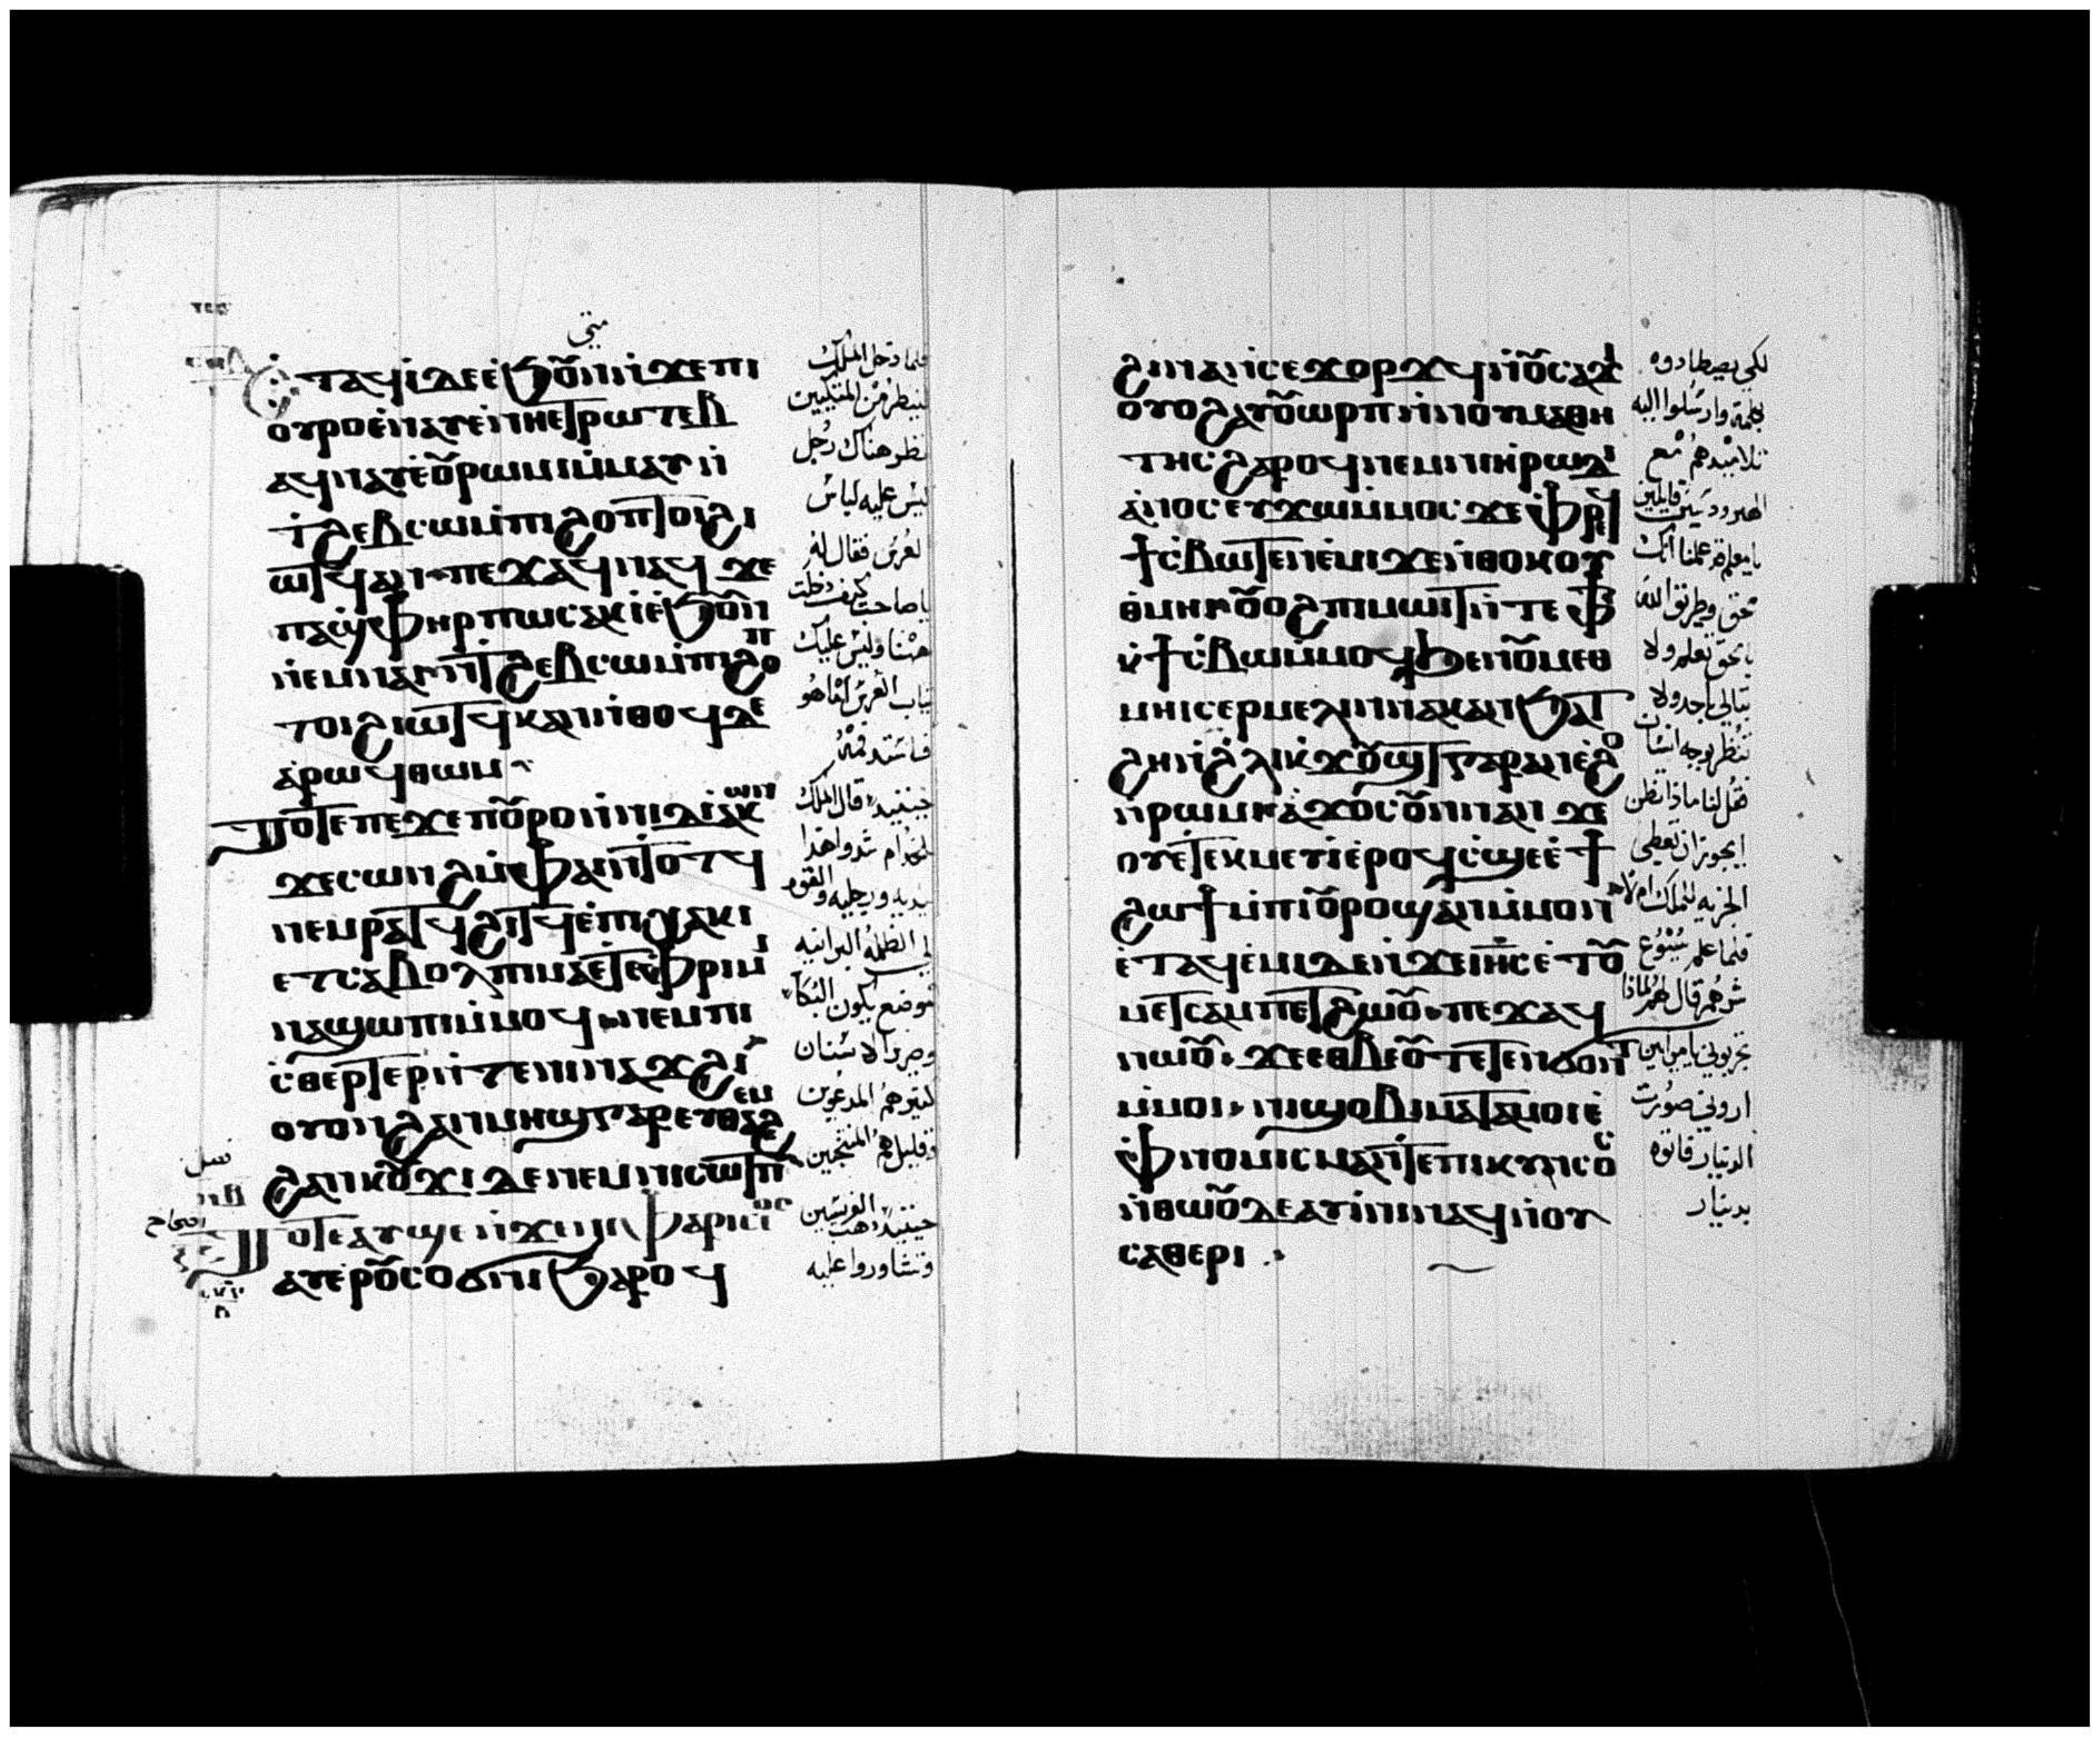 متى
ⲉⲧⲁϥⲓ̇ⲇⲉⲉ̇ϧⲟⲩⲛⲛ̇ϫⲉⲡⲓ
ⲟⲩⲣⲟⲉ̇ⲛⲁⲩⲉ̇ⲛⲏⲉⲧⲣⲱⲧⲉⲃ
ⲁϥⲛⲁⲩⲉ̇ⲟⲩⲣⲱⲙⲓⲙ̇ⲙⲁⲩ ⲛ̇
ϯϩⲉⲃⲥⲱⲙ̇ⲡⲓϩⲟⲡⲧⲟⲓϩⲓ
ⲱⲧϥⲁⲛ ⲡⲉϫⲁϥⲛⲁϥ ϫⲉ
ⲡⲁϣⲫⲏⲣ ⲡⲱⲥⲁⲕⲓ̇ⲉ̇ϧⲟⲩⲛ
ⲙ̇ⲛⲁⲓⲛ̇ϯϩⲉⲃⲥⲱⲙ̇ⲡⲓϩⲟⲡ
ⲧⲟⲓϩⲓⲱⲧⲕⲁⲛⲛ̇ⲑⲟϥⲇⲉ
ⲁ̇ⲣⲱϥⲑⲱⲙ
ⲧⲟⲧⲉⲡⲉϫⲉⲡⲟⲩⲣⲟⲛ̇ⲛⲓⲇⲓⲁ̇ⲕⲱⲛ
ϫⲉⲥⲱⲛϩⲙ̇ⲫⲁⲓⲛ̇ⲧⲟⲧϥ
ⲛⲉⲙⲣⲁⲧϥϩⲓⲧϥⲉ̇ⲡⲓⲭⲁⲕⲓ
ⲉⲧⲥⲁⲃⲟⲗⲡⲓⲙⲁⲉⲧⲉⲫⲣⲓⲙⲓ
ⲛⲁϣⲱⲡⲓⲙ̇ⲙⲟϥ ⲛⲉⲙⲡⲓ
ⲥ̇ⲑⲉⲣⲧⲉⲣⲛ̇ⲧⲉⲛⲓⲛⲁϫϩⲓ
ⲟⲩⲟⲛϩⲁⲛⲙⲏϣⲅⲁⲣⲉⲩⲑⲁϩⲉⲙ
ϩⲁⲛⲕⲟⲩϫⲓ ⲇⲉⲛⲉⲛⲓⲥⲱⲧⲡ
ⲧⲟⲧⲉⲁⲩϣⲉⲛ̇ϫⲉⲛⲓⲫⲁⲣⲓⲥⲉⲟⲥ
ⲁⲩⲉⲣⲟⲩⲥⲟϭⲛⲓϧⲁⲣⲟϥ
فلما دخل الملك
لينظر من المتكيين
نظر هناك رجل
ليس عليه لباس
العرس فقال له
ياصاحب كيف دخلت
هنا وليس عليك
ثياب العرس اما هو

حينيذ قال الملك
للخدام شدوا هذا
يديه ورجليه والقوه
في الظلمة البرانيه
موضع يكون البكا
وصرير الاسنان
كثير هم المدعوين
وقليل هم المنتجبين
حينيذ ذهب الفريسين
وتشاوروا عليه
ϩⲓⲛⲁⲛ̇ⲥⲉϫⲟⲣϫϥⲛ̇ⲟⲩⲥⲁϫⲓ
ⲟⲩⲟϩⲁⲩⲟⲩⲱⲣⲡⲛ̇ⲛⲟⲩⲙⲁⲑⲏ
ⲧⲏⲥϩⲁⲣⲟϥⲛⲉⲙⲛⲓⲏⲣⲱⲇⲓ
ⲁ̇ⲛⲟⲥⲉⲩϫⲱⲙ̇ⲙⲟⲥ ϫⲉⲫⲣⲉϥ
ϯⲥ̇ⲃⲱⲧⲉⲛⲉ̇ⲙⲓϫⲉⲛ̇ⲑⲟⲕⲟⲩ
ⲑⲙⲏⲓⲟⲩⲟϩⲡⲓⲙⲱⲓⲧⲛ̇ⲧⲉⲫϯ
ⲕ̇ϯⲥ̇ⲃⲱⲙ̇ⲙⲟϥϧⲉⲛⲟⲩⲙⲉⲑ
ⲙⲏⲓⲥⲉⲣⲙⲉⲗⲓⲛⲁⲕⲁⲛϧⲁⲧ
ϩⲏⲛ̇ϩ̇ⲗⲓⲕ̇ϫⲟⲩϣⲧⲅⲁⲣⲁⲛⲉ̇ϩⲟ
ⲛ̇ⲣⲱⲙⲓⲁ̇ϫⲟⲥⲟⲩⲛⲛⲁⲛ ϫⲉ
ⲟⲩⲉⲧⲉⲕⲙⲉⲩⲓ̇ⲉ̇ⲣⲟϥⲥ̇ϣⲉⲉ̇ϯ
ϩⲱϯⲙ̇ⲡⲓⲟⲩⲣⲟϣⲁⲛⲙ̇ⲙⲟⲛ
ⲉ̇ⲧⲁϥⲉ̇ⲙⲓⲇⲉⲛ̇ϫⲉⲓⲏⲥⲉ̇ⲧⲟⲩ
ⲙⲉⲧⲥⲁⲙⲡⲉⲧϩⲱⲟⲩ ⲡⲉϫⲁϥ
ⲛⲱⲟⲩ ϫⲉⲉⲑⲃⲉⲟⲩⲧⲉⲧⲉⲛϭⲟⲛⲧ
ⲙ̇ⲙⲟⲓ ⲛⲓϣⲟⲃⲓⲙⲁⲧⲁⲙⲟⲓⲉ̇
ⲫⲛⲟⲙⲓⲥⲙⲁⲛ̇ⲧⲉⲡⲓⲕⲩⲛⲥⲟⲥ
ⲛ̇ⲑⲱⲟⲩⲇⲉⲁⲩⲓ̇ⲛⲓⲛⲁϥⲛ̇ⲟⲩ
ⲥⲁⲑⲉⲣⲓ
لكي يصطادوه
بكلمة وارسلوا اليه
تلاميذهم مع
الهيروديسيين قايلين
يامعلم قد علمنا انك
محق وطريق الله
بالحق تعلم ولا
تبالي باحد ولا
تنظر لوجه انسان
فقل لنا ماذا تظن
ايجوز ان نعطي
الجزيه للملك ام لا
فلما علم يسوع
شرهم قال لهم لماذا
تجربوني يامرايين
اروني صورت
الدينار فاتوه
بدينار